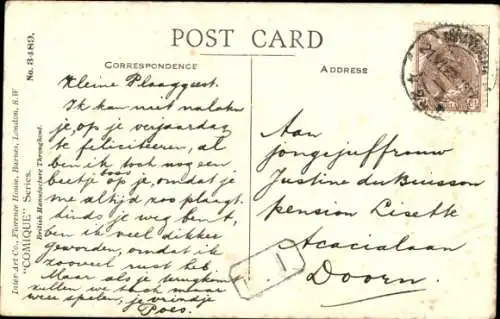 POST CARD
CORRESPONDENCE
ADDRESS
No. 3489.
"COMIQUE" Series.
Inter-Art Co., Florence House, Barnes, London, S.W
British Manufacture Throughout.
Kleine Plaaggeest.
Ik kan niet nalaten
je, op je verjaardag
te feliciteeren, al
ben ik toch nog een
beetje boos op je, omdat je
me altijd zoo plaagt.
Sinds je weg bent,
ben ik veel dikker
geworden, omdat ik
zooveel rust heb.
Maar als je terugkomt
zullen we toch maar
weer spelen, je vriendje
Poes.
Aan
jongejuffrouw
Justine du Buisson
pension Lisette
Acacialaan
Doorn.
1